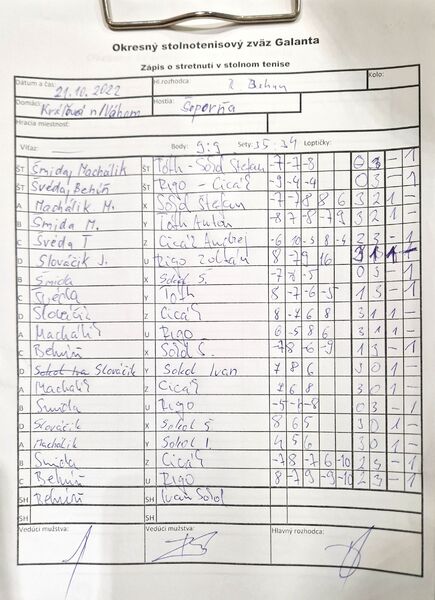 Okresný stolnotenisový zväz Galanta
Zápis o stretnutí v stolnom tenise
Dátum a čas: 21.10.2022 Hl.rozhodca: Kolo:
Domáci: Kráľová n/Váhom Hostia: Šoporňa
Hracia miestnosť:
Víťaz: Body: 9:9 Sety: 35:34 Loptičky:
ŠT Šmida, Machálik ŠT Tóth - Sokol Štefan -7 -7 -8 0 3 - 1
ŠT Švéda, Behúň ŠT Rigo - Cicáň -9 -4 -4 0 3 - 1
A Machálik M. X Sokol Štefan -7 -7 8 8 6 3 2 1 -
B Šmida M. Y Tóth Anton -8 7 -8 -7 9 3 2 1 -
C Švéda T Z Cicáň Andrej -6 10 -5 8 -4 2 3 - 1
D Slováčik J. U Rigo Zoltán 8 -7 9 16 3 1 1 -
B Šmida X Sokol Š. -7 -8 -5 0 3 - 1
C Švéda Y Tóth 8 -7 -6 -5 1 3 - 1
D Slováčik Z Cicáň 8 -7 6 8 3 1 1 -
A Machálik U Rigo 6 -5 8 6 3 1 1 -
C Behúň X Sokol Š. -7 8 -6 -9 1 3 - 1
D Slováčik Y Sokol Ivan 7 8 6 3 0 1 -
A Machálik Z Cicáň 7 6 8 3 0 1 -
B Šmida U Rigo -5 -8 0 3 - 1
D Slováčik X Sokol Š 8 6 5 3 0 1 -
A Machálik Y Sokol I. 4 5 6 3 0 1 -
B Šmida Z Cicáň -7 8 -7 6 -10 2 3 - 1
C Behúň U Rigo 8 -7 9 -9 -10 2 3 - 1
SH Behúň SH Ivan Sokol
SH SH
Vedúci mužstva: Vedúci mužstva: Hlavný rozhodca: